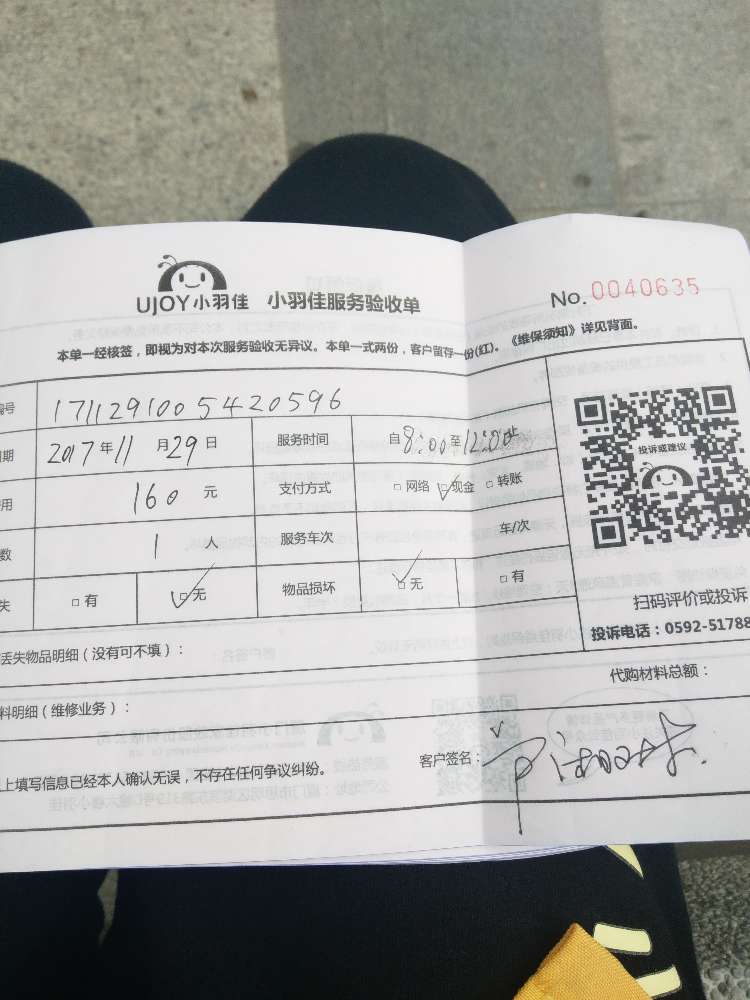 UJOY小羽佳 小羽佳服务验收单 No. 0040635
本单一经核签，即视为对本次服务验收无异议。本单一式两份，客户留存一份(红)。《维保须知》详见背面。
编号 17112910054​20596
期 2017年11月29日 服务时间 自8:00至12:00止
用 160元 支付方式 □网络 ☑现金 □转账
数 1人 服务车次 年/次
失 □有 ☑无 物品损坏 ☑无 □有
投诉或建议
扫码评价或投诉
投诉电话：0592-51788
丢失物品明细（没有可不填）：
代购材料总额：
料明细（维修业务）：
上填写信息已经本人确认无误，不存在任何争议纠纷。 客户签名：